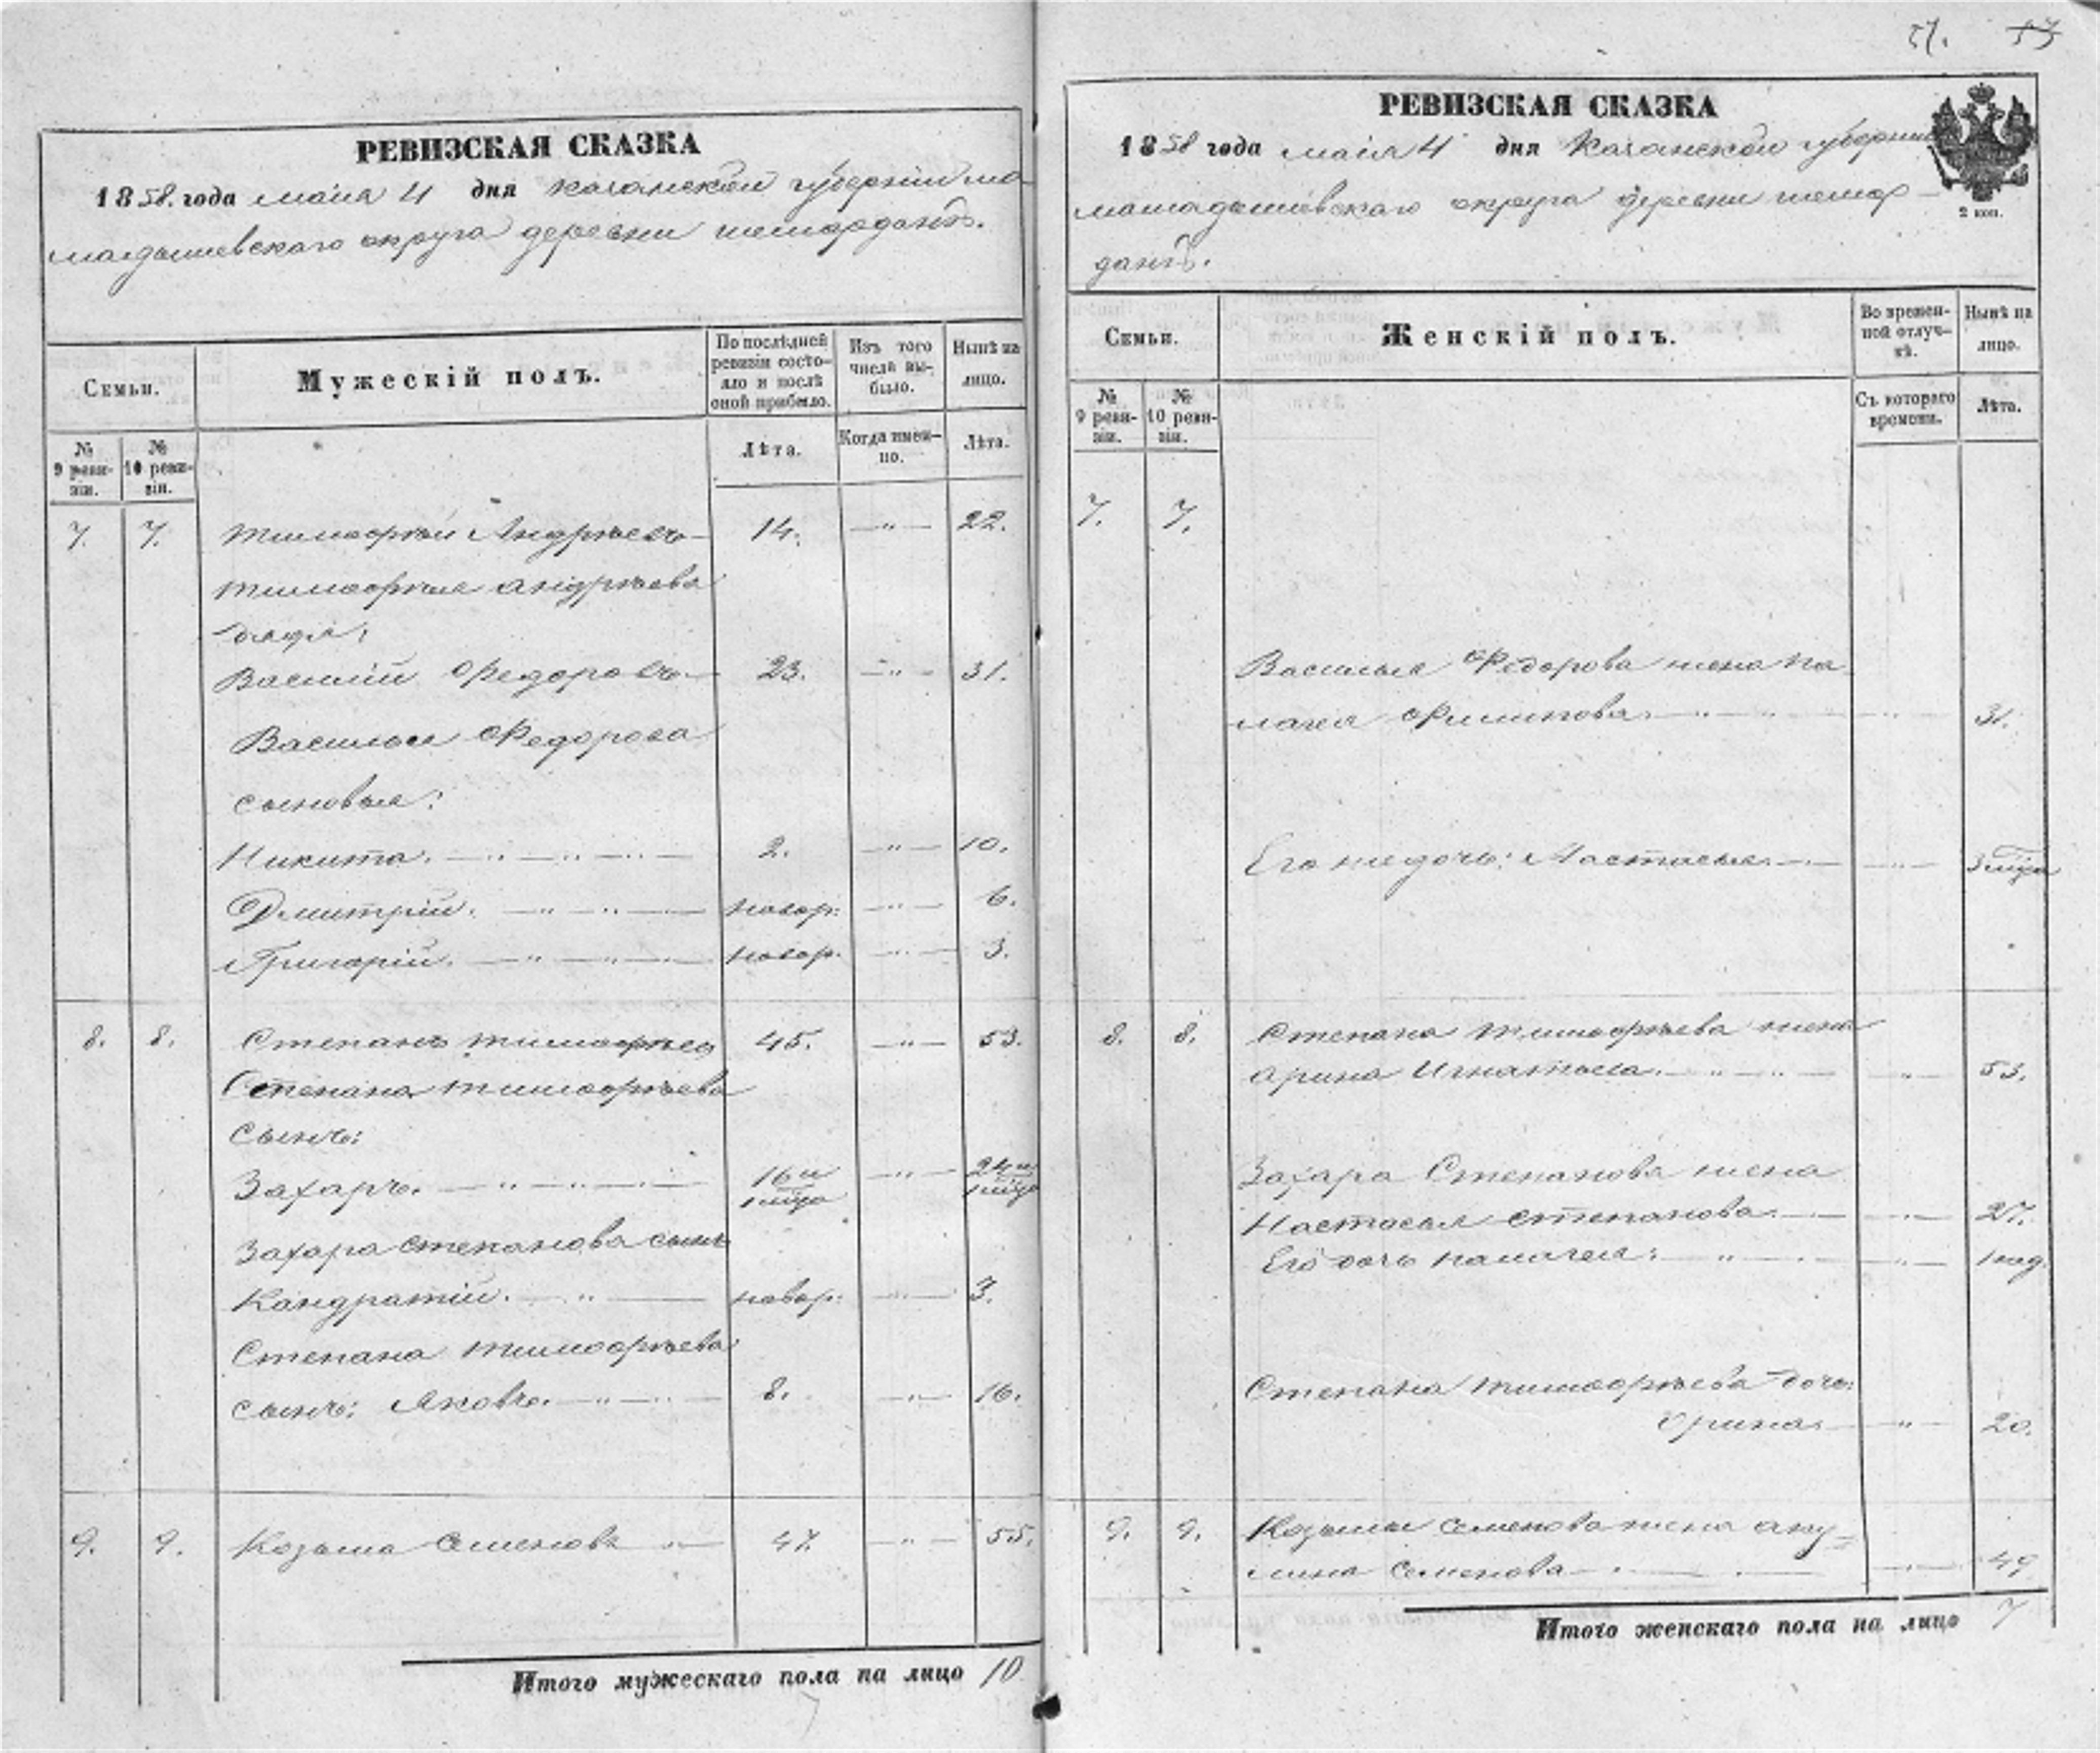 57. 53
РЕВИЗСКАЯ СКАЗКА
1858. года маiя 4 дня казанской губернiи ма
мадышевскаго округа деревни шемордановъ.
Семьи.
Мужескiй полъ.
По послѣдней ревизiи состояло и послѣ оной прибыло.
Изъ того числа выбыло.
Нынѣ на лицо.
№ 9 ревизiи.
№ 10 ревизiи.
Лѣта.
Когда именно.
Лѣта.
7. 7. тимофѣй Андрѣевъ 14. —"— 22.
тимофѣя андрѣева
дядя:
Василiй Федоровъ 23. —"— 31.
Василья Федорова
сыновья:
Никита. —"—"—"— 2. —"— 10.
Дмитрiй. —"—"— новор: —"— 6.
Григорiй. —"—"— новор. —"— 3.
8. 8. Степанъ тимофѣев 45. —"— 53.
Степана тимофѣева
сынъ:
Захаръ. —"—"— 16 и 1 мѣца —"— 24 и 1 мѣца
Захара степанова сынъ
Кандратiй. —"— новор: —"— 3.
Степана тимофѣева
сынъ: Яковъ. —"—"— 8. —"— 16.
9. 9. Козьма Семеновъ —"— 47. —"— 55.
Итого мужескаго пола на лицо 10
РЕВИЗСКАЯ СКАЗКА
1858 года маiя 4 дня Казанской губернiи
мамадышевскаго округа деревни шемор-
дановъ.
2 коп.
Семьи.
Женскiй полъ.
Во временной отлучкѣ.
Нынѣ на лицо.
№ 9 ревизiи.
№ 10 ревизiи.
Съ котораго времени.
Лѣта.
7. 7.
Василья Федорова жена па
лагея Филипова. —"—"— —"— 31.
Его же дочь: Настасья. —"— —"— 3 мѣца
8. 8. Степана тимофѣева жена
арина Игнатьева. —"—"— —"— 53.
Захара Степанова жена
Настасья степанова. —"— —"— 27.
Его дочь палагея: —"—"— —"— 1 нед.
Степана тимофѣева дочь:
Орина. —"— 20.
9. 9. Козьмы семенова жена аку=
лина семенова —"—"— —"— 49
Итого женскаго пола на лицо 7